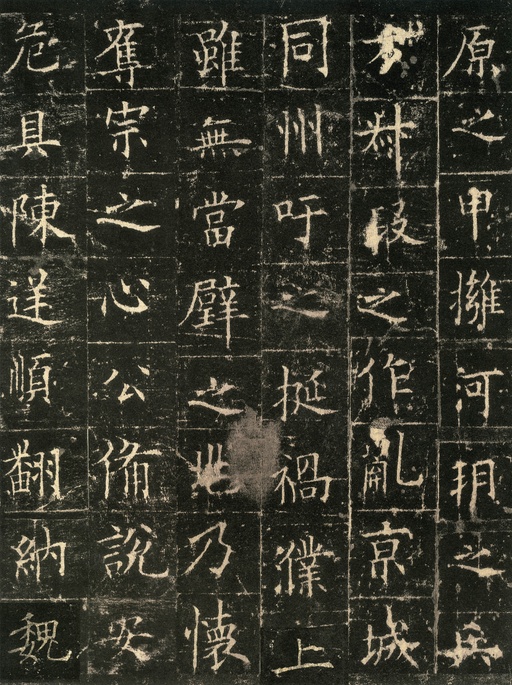 原之甲擁河朔之兵
叔段之作亂京城
同州吁之挺禍濮上
雖無當璧之地乃懷
奪宗之心公備說安
危具陳逆順翻納魏